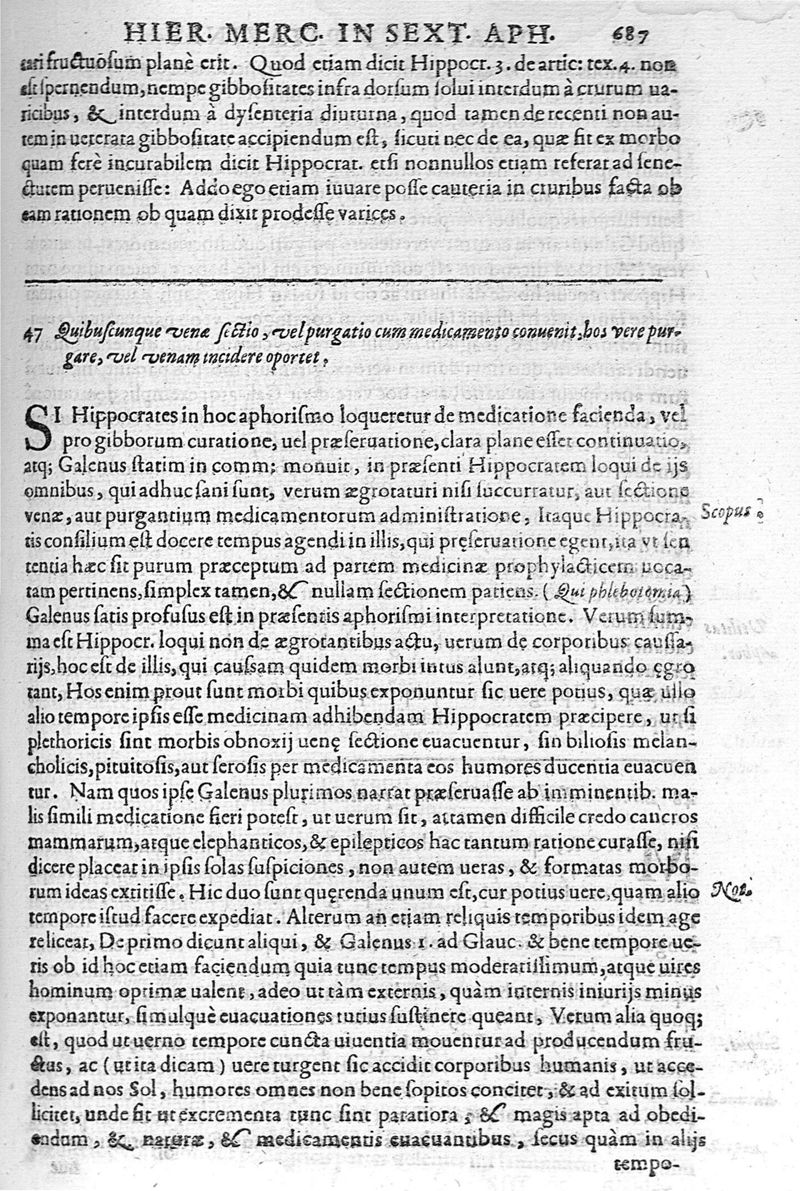 HIER. MERC. IN SEXT. APH. 687
tari fructuosum planè erit. Quod etiam dicit Hippocr. 3. de artic: tex. 4. non
est spernendum, nempe gibbositates infra dorsum solui interdum à crurum ua-
ricibus, & interdum à dysenteria diuturna, quod tamen de recenti non au-
tem in ueterata gibbositate accipiendum est, sicuti nec de ea, quæ fit ex morbo
quam ferè incurabilem dicit Hippocrat. etsi nonnullos etiam referat ad sene-
ctutem peruenisse: Addo ego etiam iuuare posse cauteria in cruribus facta ob
eam rationem ob quam dixit prodesse varices.
47 Quibuscunque venæ sectio, vel purgatio cum medicamento conuenit, hos vere pur-
gare, vel venam incidere oportet.
SI Hippocrates in hoc aphorismo loqueretur de medicatione facienda, vel
pro gibborum curatione, uel præseruatione, clara plane esset continuatio,
atq; Galenus statim in comm: monuit, in præsenti Hippocratem loqui de ijs
omnibus, qui adhuc sani sunt, verum ægrotaturi nisi succurratur, aut sectione
venæ, aut purgantium medicamentorum administratione, Itaque Hippocra-
Scopus
tis consilium est docere tempus agendi in illis, qui pręseruatione egent, ita vt sen
tentia hæc sit purum præceptum ad partem medicinæ prophylacticem uoca-
tam pertinens, simplex tamen, & nullam sectionem patiens. (Qui phlebotomia)
Galenus satis profusus est in præsentis aphorismi interpretatione. Verum sum-
ma est Hippocr. loqui non de ægrotantibus actu, uerum de corporibus caussa-
rijs, hoc est de illis, qui caussam quidem morbi intus alunt, atq; aliquando ęgro
tant, Hos enim prout sunt morbi quibus exponuntur sic uere potius, quæ ullo
alio tempore ipsis esse medicinam adhibendam Hippocratem præcipere, ut si
plethoricis sint morbis obnoxij uenę sectione euacuentur, sin biliosis melan-
cholicis, pituitosis, aut serosis per medicamenta eos humores ducentia euacuen
tur. Nam quos ipse Galenus plurimos narrat præseruasse ab imminentib. ma-
lis simili medicatione fieri potest, ut uerum sit, attamen difficile credo cancros
mammarum, atque elephanticos, & epilepticos hac tantum ratione curasse, nisi
dicere placeat in ipsis solas suspiciones, non autem ueras, & formatas morbo-
rum ideas extitisse. Hic duo sunt quęrenda unum est, cur potius uere, quam alio
Not.
tempore istud facere expediat. Alterum an etiam reliquis temporibus idem age
re liceat, De primo dicunt aliqui, & Galenus 1. ad Glauc. & bene tempore ue-
ris ob id hoc etiam faciendum quia tunc tempus moderatissimum, atque uires
hominum optimæ ualent, adeo ut tàm externis, quàm internis iniurijs minus
exponantur, simulquè euacuationes tutius sustinere queant, Verum alia quoq;
est, quod ut uerno tempore cuncta uiuentia mouentur ad producendum fru-
ctus, ac (ut ita dicam) uere turgent sic accidit corporibus humanis, ut acce-
dens ad nos Sol, humores omnes non bene sopitos concitet, & ad exitum sol-
licitet, unde fit ut excrementa tunc sint paratiora, & magis apta ad obedi-
endum, & naturæ, & medicamentis euacuantibus, secus quàm in alijs
tempo-